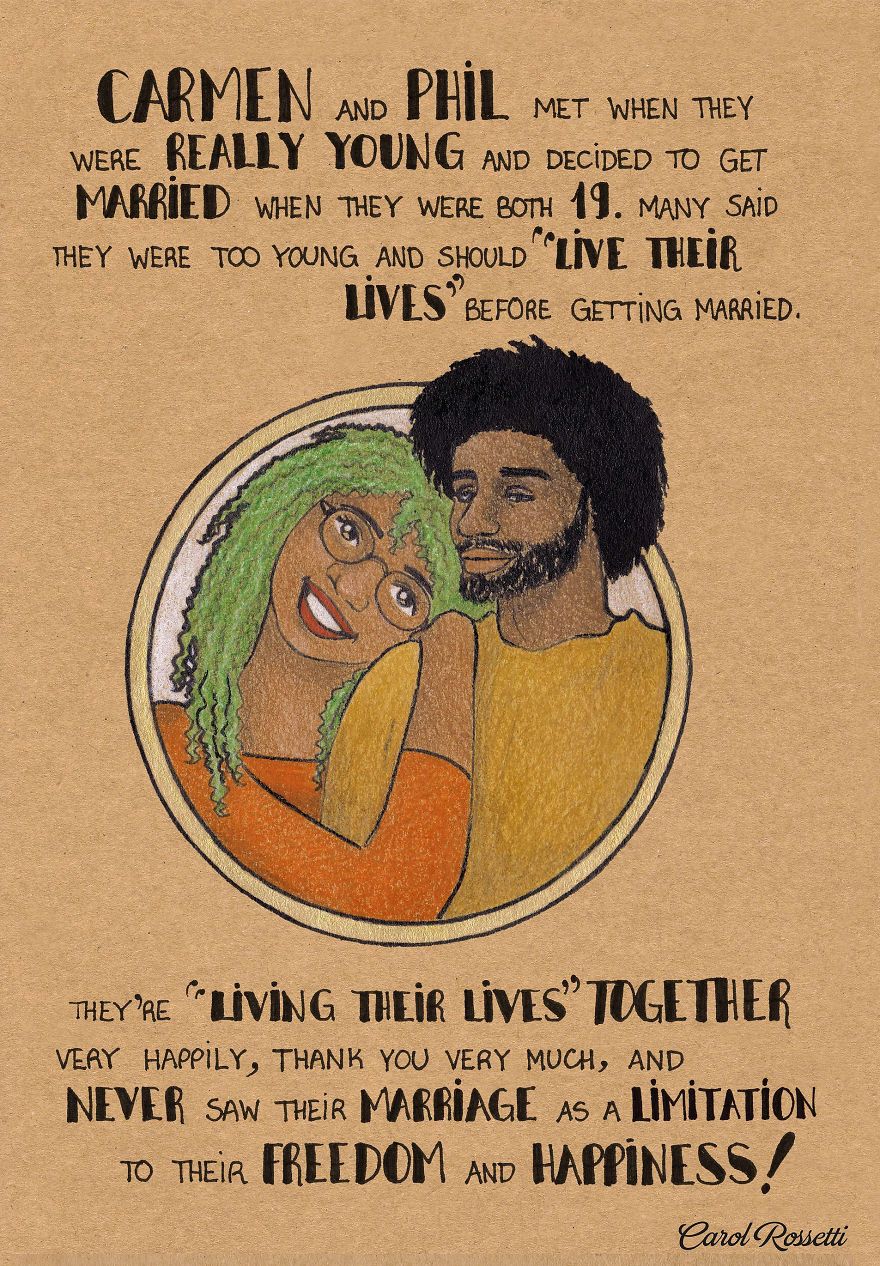 CARMEN AND PHIL MET WHEN THEY
WERE REALLY YOUNG AND DECIDED TO GET
MARRIED WHEN THEY WERE BOTH 19. MANY SAID
THEY WERE TOO YOUNG AND SHOULD "LIVE THEIR
LIVES" BEFORE GETTING MARRIED.
THEY'RE "LIVING THEIR LIVES" TOGETHER
VERY HAPPILY, THANK YOU VERY MUCH, AND
NEVER SAW THEIR MARRIAGE AS A LIMITATION
TO THEIR FREEDOM AND HAPPINESS!
Carol Rossetti